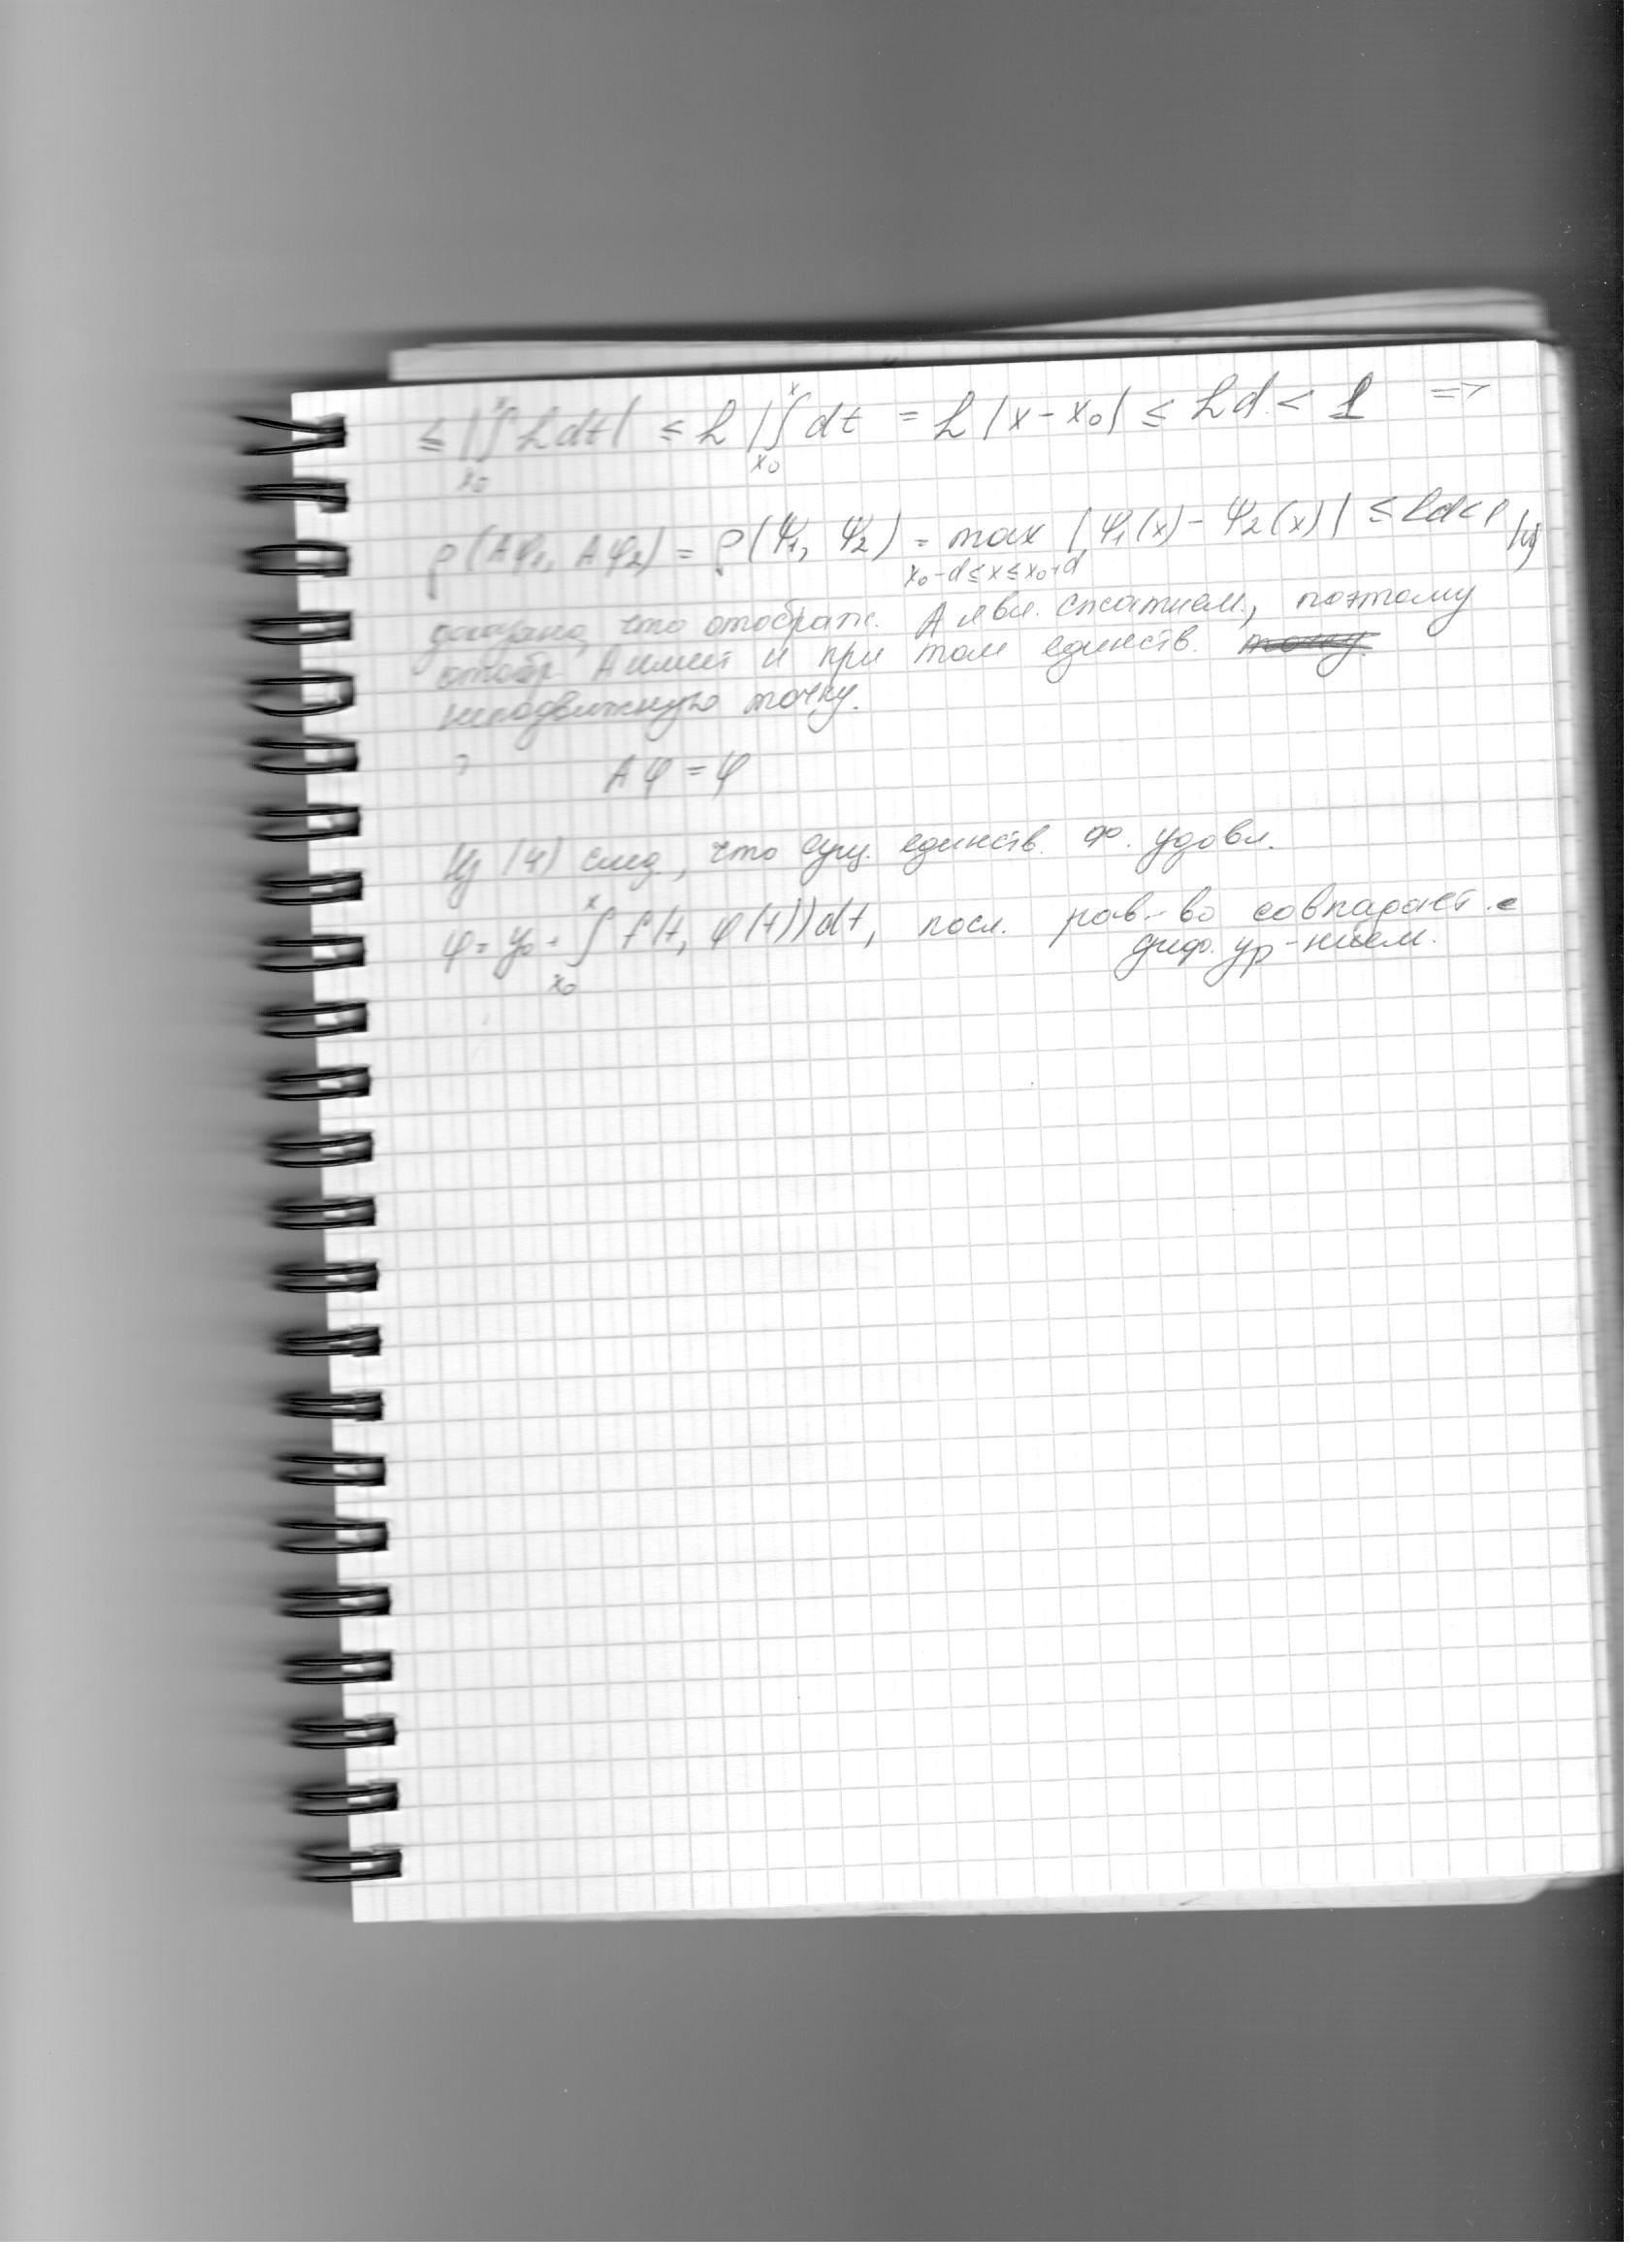 ≤ |∫ₓ₀ˣ L dt| ≤ L |∫ₓ₀ˣ dt = L |x - x₀| ≤ Ld < 1 =>
ρ(Aφ₁, Aφ₂) = ρ(ψ₁, ψ₂) = max |ψ₁(x) - ψ₂(x)| ≤ Ld < 1 (4)
x₀-d≤x≤x₀+d
доказано, что отображ. A явл. сжатием, поэтому
отобр. A имеет и при том единств.
неподвижную точку.
Aφ = φ
Из (4) след., что сущ. единств. ф. удовл.
φ = y₀ + ∫ₓ₀ˣ f(t, φ(t))dt, посл. рав-во совпадает с
диф. ур-нием.